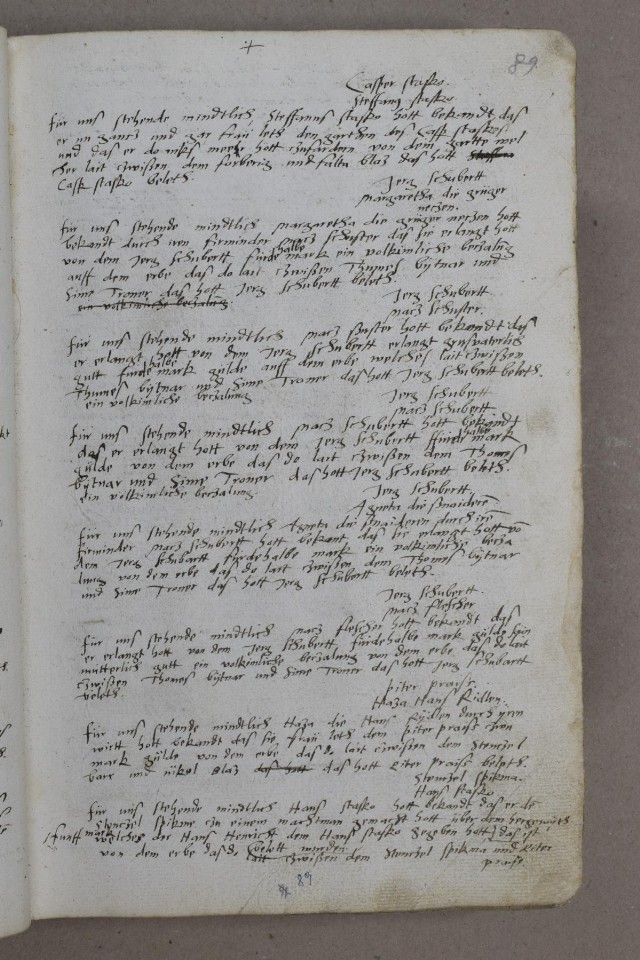 89
Casper stasko.
Steffanus stasko
Für uns stehende mindtlich Steffanus stasko hott bekandt das
er in gantz und gar frau leth den garthen des Casp staskes
und das er do niks mehe hott czufardern von dem gartte wel
cher lait czwißen dem forberig und falta bloz das hott
Cask stasko beleth.
Jerg Schubertt
Margaretha die grüger
neczen.
Für uns stehende mindlich Margaretha die grüger neczen hott
bekandt durch iren firminder Marz Schuster das sie erlangt hott
von dem Jerg Schubertt fürdehalbe mark ein volkimliche beczalüg
auff dem erbe das do lait czwißen Thomes bytnar und
Sime Troner das hott Jerg Schubertt beleth.
ein volkimliche beczalüng.
Jerg Schubertt
Marz Schuster.
Für uns stehende mindlich Marz Suster hott bekandt das
er erlangt hott von dem Jerg Schubertt erlangt
gutt fürdehalbe mark gülde auff dem erbe welches lait czwißen
Thumes bytnar und Sime Troner das hott Jerg Schubertt beleth.
ein volkimliche beczalung
Jerg Schubertt
Marz Schubertt
Für uns stehende mindtlich Marz Schubertt hott bekandt
das er erlangt hott von dem Jerg Schubertt fürdehalbe mark
gülde von dem erbe das do lait czwißen dem Thomes
bytnar und Sime Troner das hott Jerg Schubertt beleth.
ein volkimliche beczalung.
Jerg Schubertt
Agneta die snaideren
Für uns stehende mindtlich Agneta die snaideren durch ire
firminder Marz Schubertt hott bekant das sie erlangt hott vo
dem Jerg Schubartt fürdehalbe mark ein volkimliche becza
lung von dem erbe das do lait czwißen dem Thomes bytnar
und Sime Troner das hott Jerg Schubertt beleth.
Jerg Schubertt.
Marz flescher
Für uns stehende mindtlich Marz flescher hott bekandt das
er erlangt hott von dem Jerg Schubertt fürdehalbe mark gülde sein
mutterlich gutt ein volkimliche beczalung von dem erbe das do lait
czwißen Thomes bytnar und Sime Troner das hott Jerg Schubartt
beleth.
piter praise.
Haza Hans Ridlen.
Für uns stehende mindtlich Haza die Hans Rydlen durch yren
wirtt hott bekandt das sie frau leth dem piter praise czen
mark gülde von dem erbe das do lait czwißen dem Stenczel
barr und nikol blaz das hott das hott piter praise beleth.
Stenczel spikma.
Hans stasko
Für uns stehende mindtlich Hans stasko hott bekandt das er de
Stenczel spikme czu einem machtman gemacht hott über dem
funff mark welches der Hans Henricht dem Hans stasko gegeben hott das ist
von dem erbe das do belett worden lait czwißen dem Stenczel spikma und piter
praise.
89